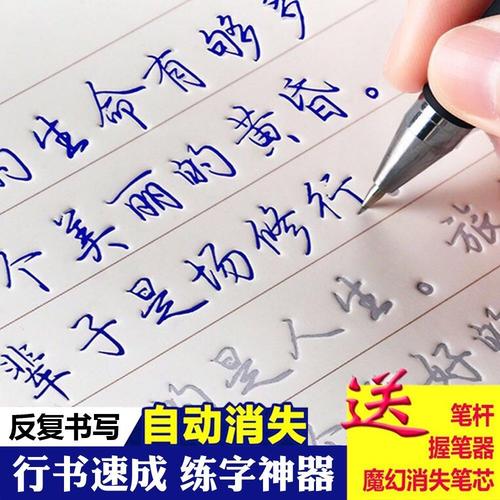 的生命有够多
个美丽的黄昏。
辈子是场修行
的是人生。旅
好的
反复书写 自动消失
行书速成 练字神器
送 笔杆
握笔器
魔幻消失笔芯